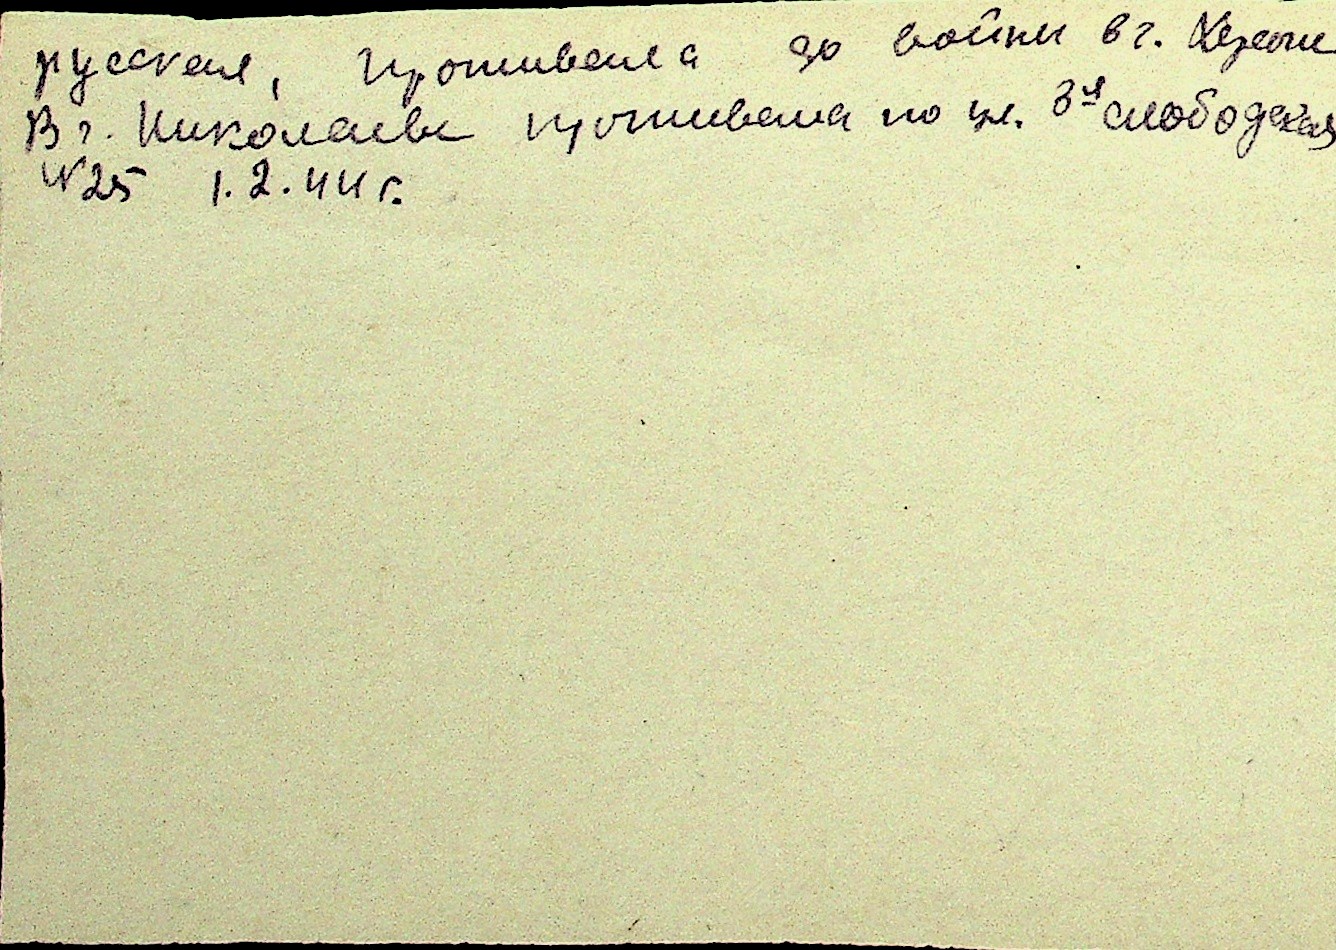 русская, проживала до войны в г. Херсоне
В г. Николаеве проживала по ул. 3я слободская
№25 1.2.44 г.